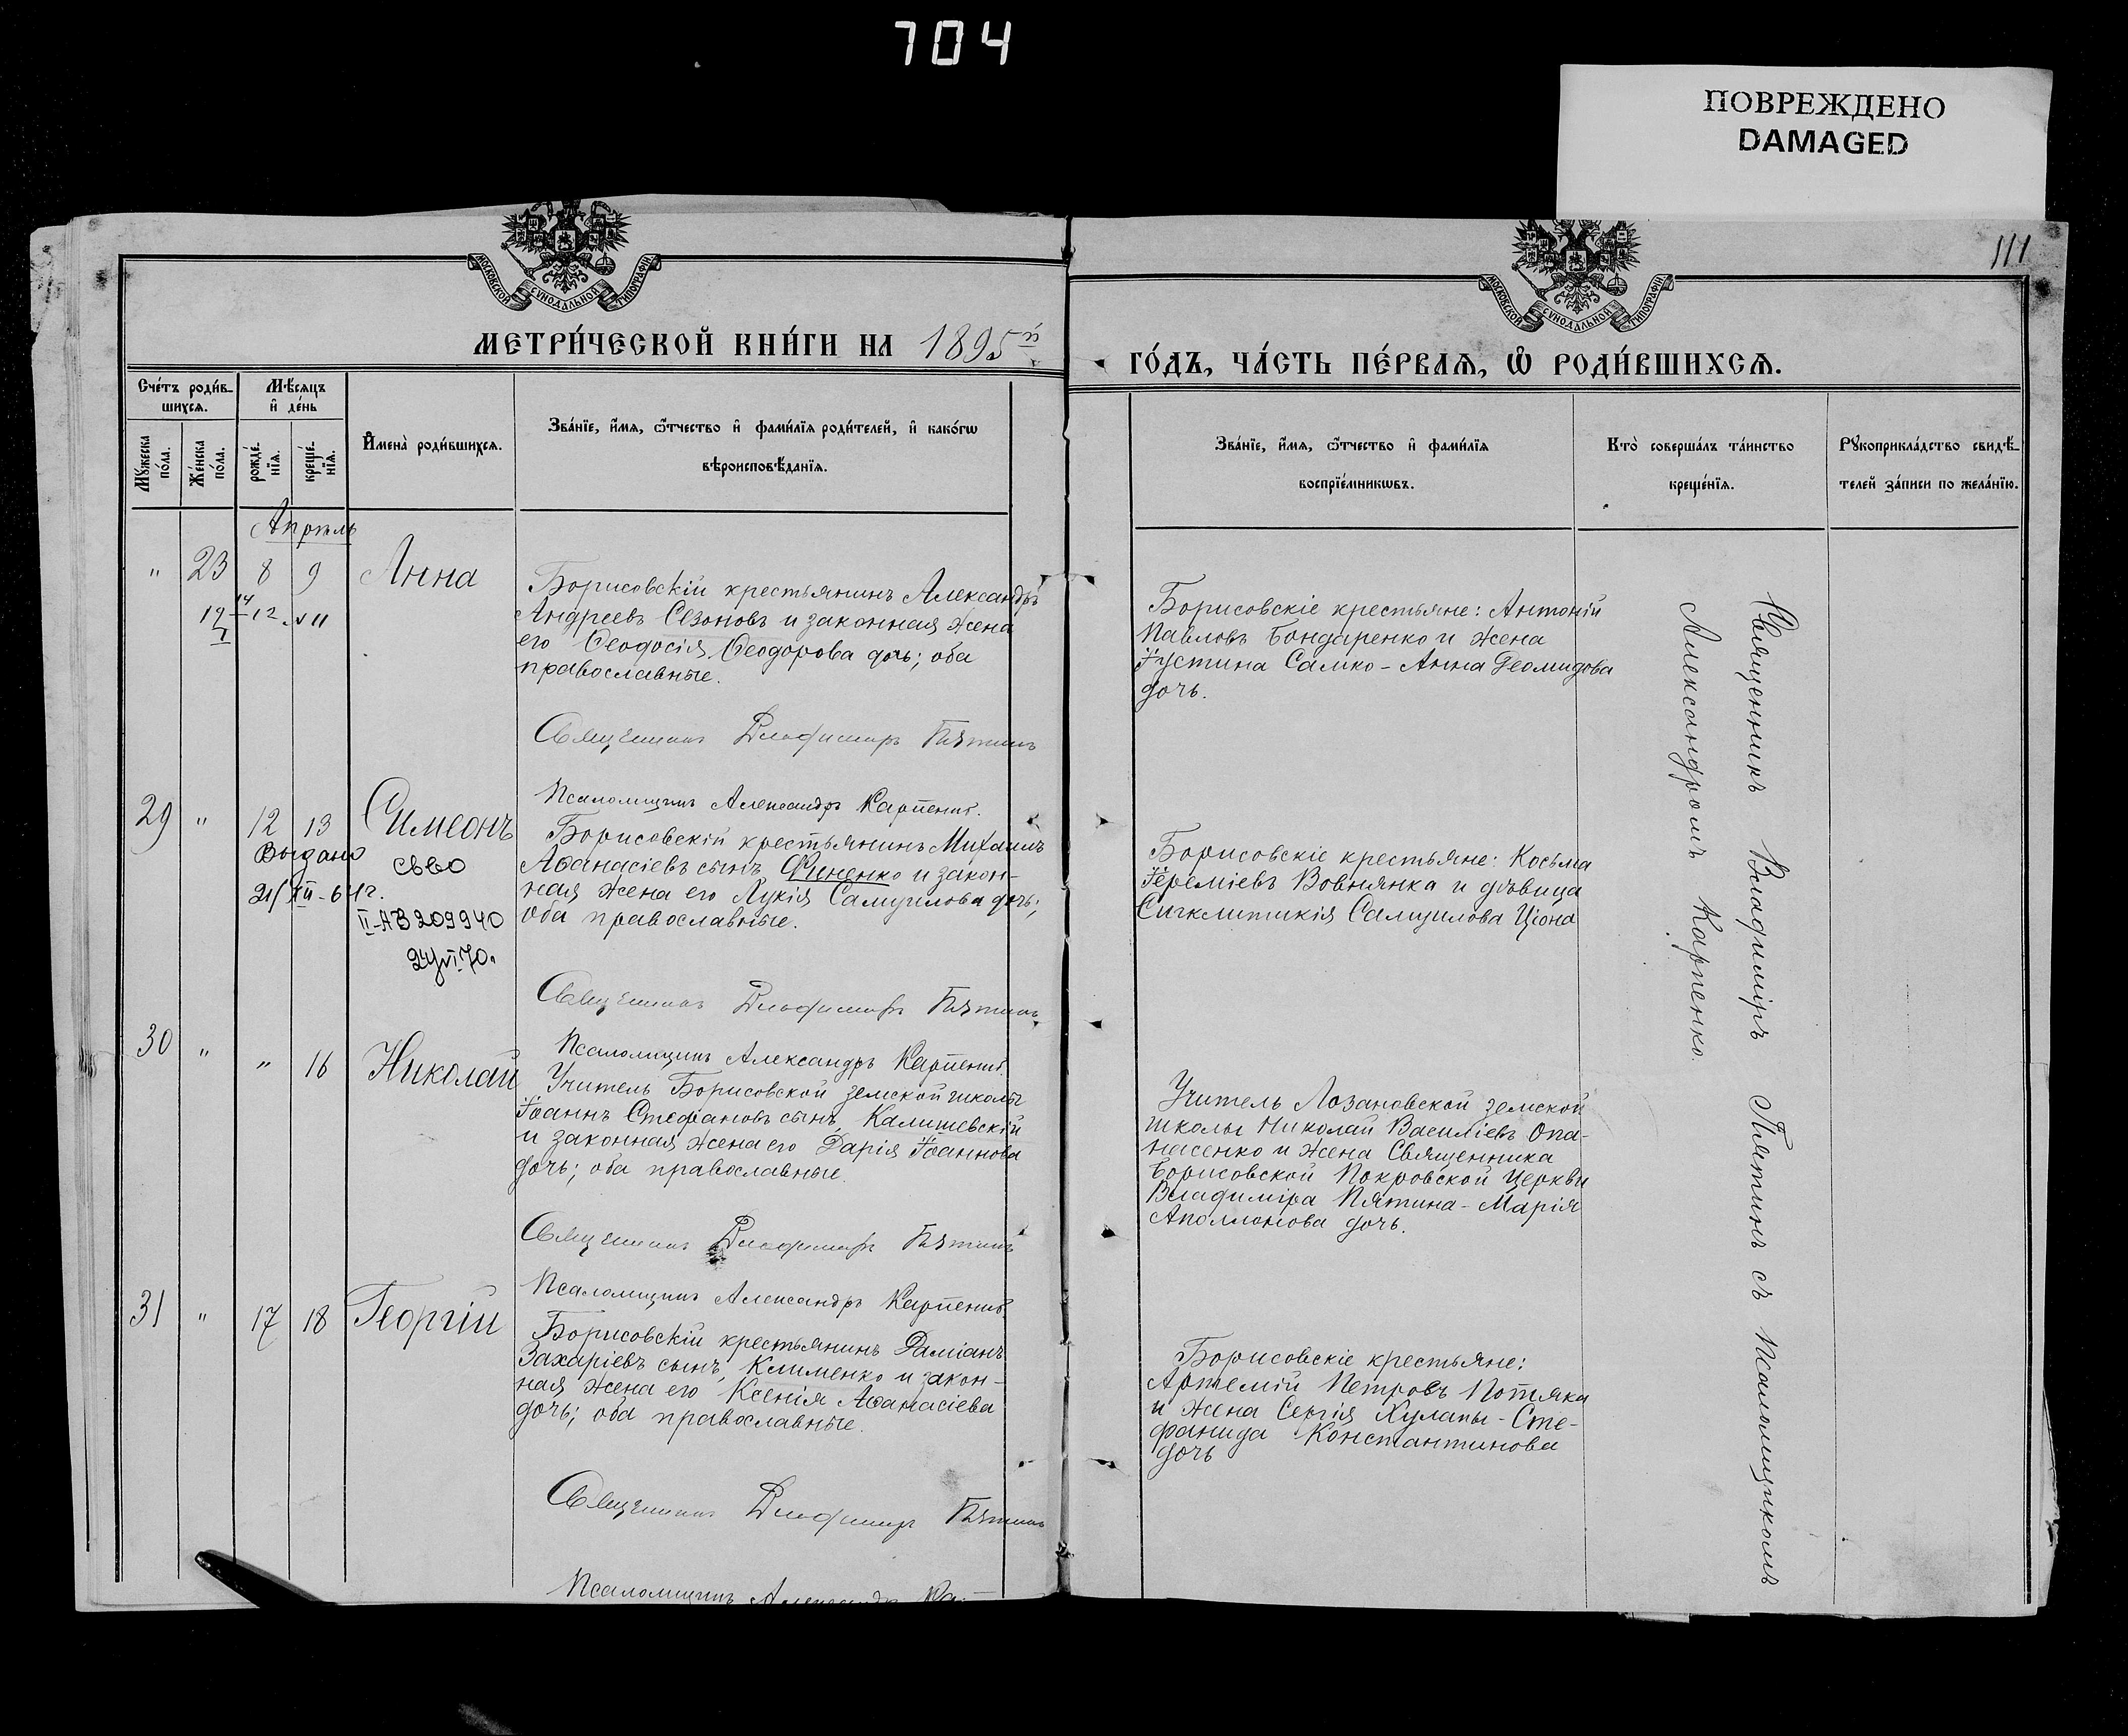 704
ПОВРЕЖДЕНО
DAMAGED
111
МОСКОВСКОЙ СѴНОДАЛЬНОЙ ТИПОГРАФІИ
МОСКОВСКОЙ СѴНОДАЛЬНОЙ ТИПОГРАФІИ
МЕТРИ́ЧЕСКОЙ КНИ́ГИ НА 1895й
ГО́ДЪ, ЧА́СТЬ ПЕ́РВАѦ, Ѡ҆ РОДИ́ВШИХСѦ.
Сче́тъ роди́в-
шихсѧ.
Мꙋжеска
по́ла.
Же́нска
по́ла.
Мѣ́сѧцъ
и҆ де́нь
рожде́-
нїѧ.
креще́-
нїѧ.
И҆мена̀ роди́вшихсѧ.
Зва́нїе, и҆́мѧ, ѻ҆́тчество и҆ фами́лїѧ роди́телей, и҆ како́гѡ
вѣроисповѣ́данїѧ.
Зва́нїе, и҆́мѧ, ѻ҆́тчество и҆ фами́лїѧ
воспрїе́мникѡвъ.
Кто̀ соверша́лъ та́инство
креще́нїѧ.
Рꙋкоприкла́дство свидѣ́-
телей за́писи по жела́нїю.
Апрѣль
" 23 8 9 Анна
Борисовскій крестьянинъ Александръ
Андреевъ Сезоновъ и законная жена
его Ѳеодосія Ѳеодорова дочь; оба
православные.
Священникъ Владиміръ Пятинъ
Псаломщикъ Александръ Карпенко.
Борисовскіе крестьяне: Антоній
Павловъ Бондаренко и жена
Іустина Самко - Анна Деомидова
дочь.
29 " 12 13 Симеонъ
Выдано
св-во
21/XII-64г.
II-АВ 209940
24/VI.70.
Борисовскій крестьянинъ Михаилъ
Аѳанасіевъ сынъ, Финенко и закон-
ная жена его Лукія Самуилова дочь;
оба православные.
Священникъ Владиміръ Пятинъ
Псаломщикъ Александръ Карпенко.
Борисовскіе крестьяне: Косьма
Іереміевъ Вовнянка и дѣвица
Сигклитикія Самуилова Ціона
30 " " 16 Николай
Учитель Борисовской земской школы
Іоаннъ Стефановъ сынъ, Калишевскій
и законная жена его Дарія Іоаннова
дочь; оба православные.
Священникъ Владиміръ Пятинъ
Псаломщикъ Александръ Карпенко
Учитель Лозановской земской
школы Николай Василіевъ Опа-
насенко и жена Священника
Борисовской Покровской церкви
Владиміра Пятина - Марія
Аполлонова дочь.
31 " 17 18 Георгій
Борисовскій крестьянинъ Даміанъ
Захаріевъ сынъ, Клименко и закон-
ная жена его Ксенія Аѳанасіева
дочь; оба православные.
Священникъ Владиміръ Пятинъ
Псаломщикъ Александръ
Борисовскіе крестьяне:
Артемій Петровъ Потяка
и жена Сергія Кулапы - Сте-
фанида Константинова
дочь
Священникъ Владиміръ Пятинъ съ псаломщикомъ
Александромъ Карпенко.